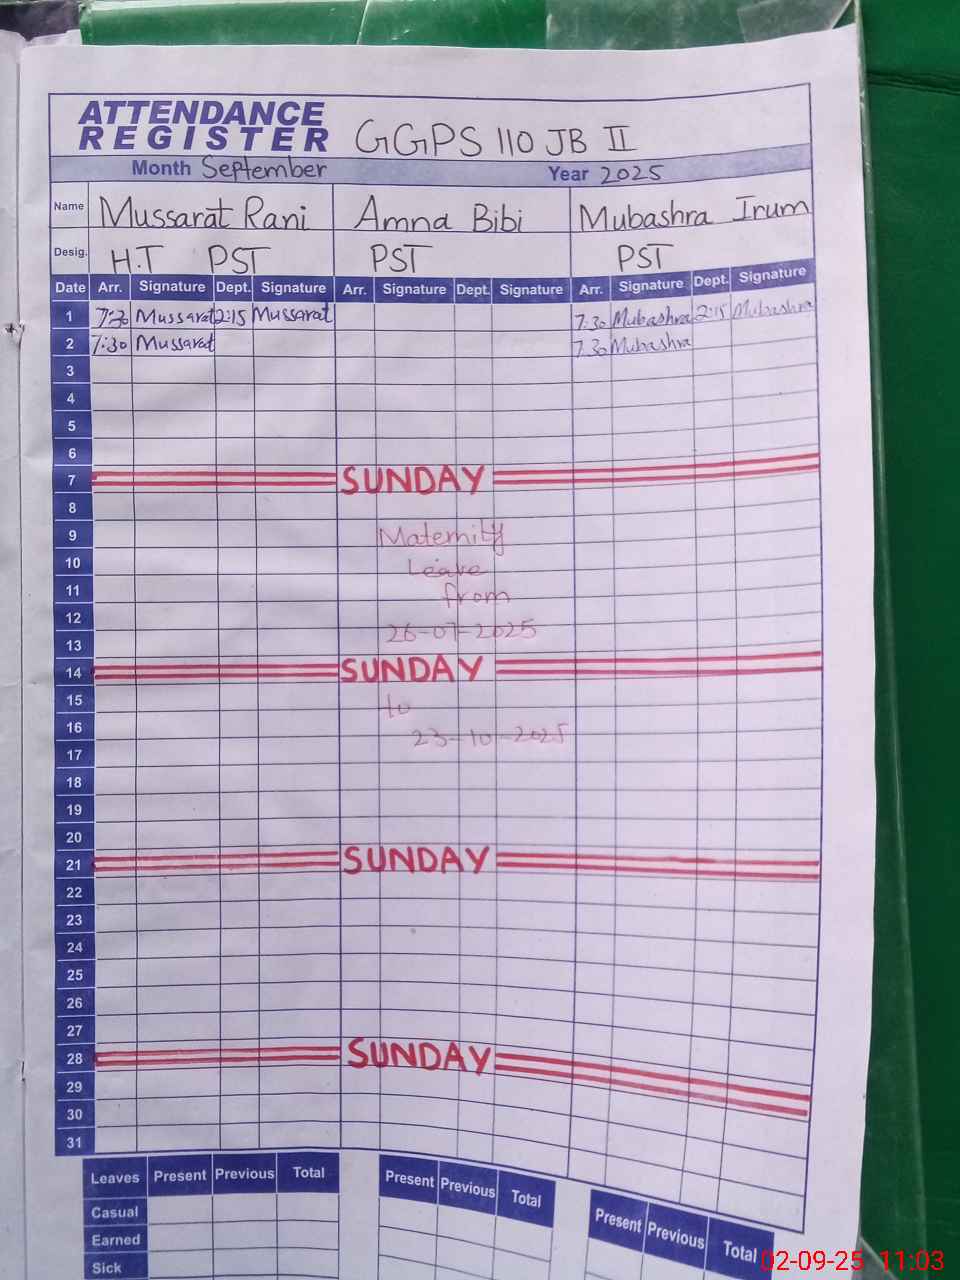 ATTENDANCE
REGISTER GGPS 110 JB II
Month September Year 2025
Name Mussarat Rani Amna Bibi Mubashra Irum
Desig. H.T PST PST PST
Date Arr. Signature Dept. Signature Arr. Signature Dept. Signature Arr. Signature Dept. Signature
1 7:30 Mussarat 2:15 Mussarat 7:30 Mubashra 2:15 Mubashra
2 7:30 Mussarat 7:30 Mubashra
3
4
5
6
7 SUNDAY
8
9 Maternity
10 Leave
11 from
12
13 26-07-2025
14 SUNDAY
15 to
16 23-10-2025
17
18
19
20
21 SUNDAY
22
23
24
25
26
27
28 SUNDAY
29
30
31
Leaves Present Previous Total Present Previous Total Present Previous Total
Casual
Earned
Sick
02-09-25 11:03